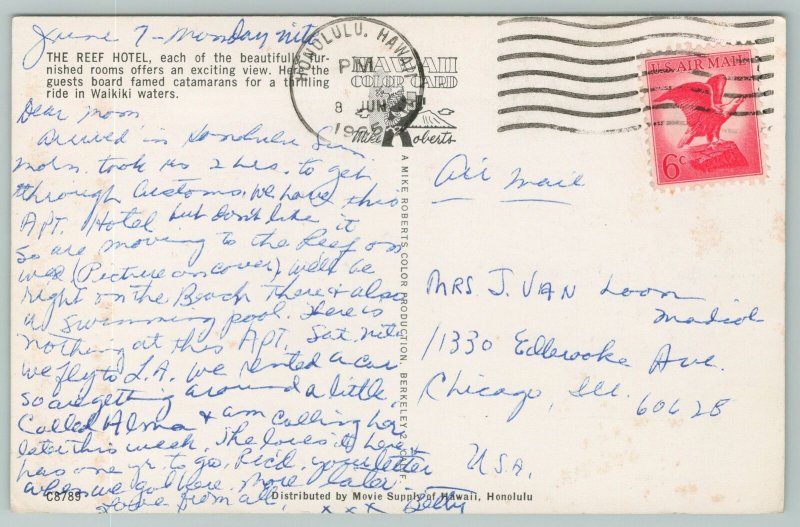 June 7 - Monday nite
THE REEF HOTEL, each of the beautifully fur-
nished rooms offers an exciting view. Here the
guests board famed catamarans for a thrilling
ride in Waikiki waters.
Dear Mom
Arrived in Honolulu Sun.
morn. took us 2 hrs. to get
through Customs. We have this
Apt. Hotel but don't like it
so are moving to the Reef on
wed (Picture on cover) will be
right on the Beach there & also
a swimming pool. There is
nothing at this Apt. Sat. nite
we fly to L.A. We rented a car
so are getting around a little.
Called Alma & am calling her
later this week. She loves it here &
has one yr. to go. Rec'd. your letter
when we got here. More later.
Love from all,
xxx Betty
C8789
Distributed by Movie Supply of Hawaii, Honolulu
A MIKE ROBERTS COLOR PRODUCTION, BERKELEY 2, CALIF.
HAWAII
COLOR CARD
Mike Roberts
HONOLULU, HAWAII
PM
8 JUN
U.S. AIR MAIL
6¢
Air Mail
MRS J. VAN Loon
11330 Edbrooke Ave.
Chicago, Ill.
60628
U.S.A.